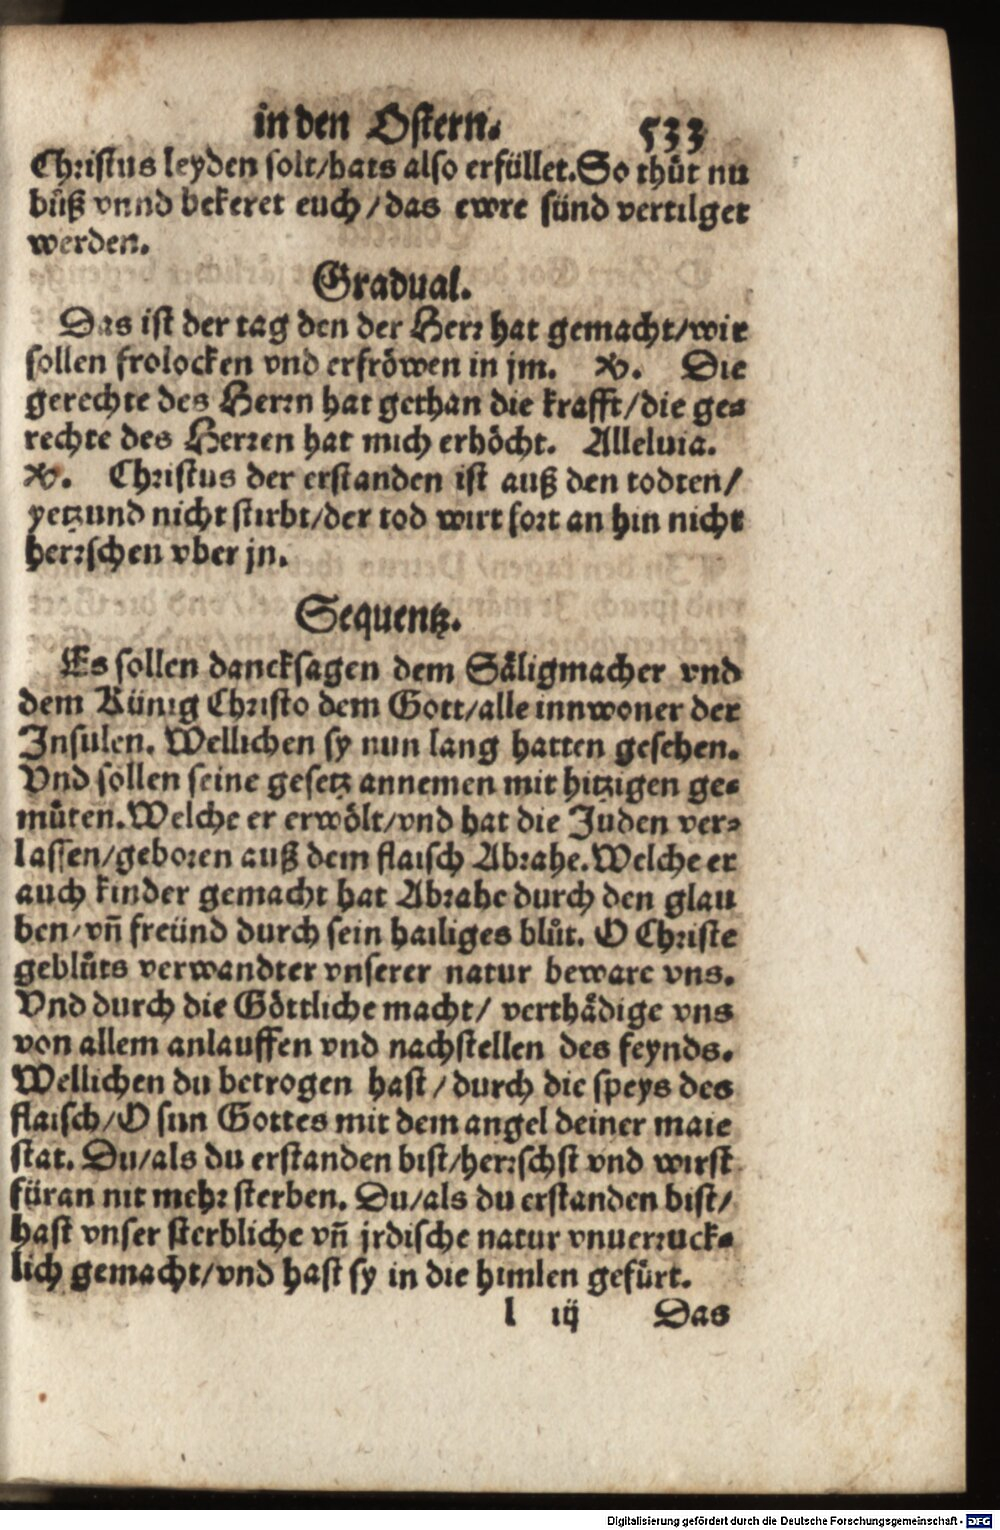 in den Ostern. 533
Christus leyden solt/hats also erfüllet. So thůt nu
bůß vnnd bekeret euch/das ewre sünd vertilget
werden.
Gradual.
Das ist der tag den der Herr hat gemacht/wir
sollen frolocken vnd erfröwen in jm. ℣. Die
gerechte des Herrn hat gethan die krafft/die ge⸗
rechte des Herren hat mich erhöcht. Alleluia.
℣. Christus der erstanden ist auß den todten/
yetzund nicht stirbt/der tod wirt fort an hin nicht
herrschen vber jn.
Sequentz.
Es sollen dancksagen dem Säligmacher vnd
dem Künig Christo dem Gott/alle innwoner der
Insulen. Wellichen sy nun lang hatten gesehen.
Vnd sollen seine gesetz annemen mit hitzigen ge⸗
můten. Welche er erwölt/vnd hat die Juden ver⸗
lassen/geboren auß dem flaisch Abrahe. Welche er
auch kinder gemacht hat Abrahe durch den glau
ben/vñ freünd durch sein hailiges blůt. O Christe
geblůts verwandter vnserer natur beware vns.
Vnd durch die Göttliche macht/ verthädige vns
von allem anlauffen vnd nachstellen des feynds.
Wellichen du betrogen hast/durch die speys des
flaisch/O sun Gottes mit dem angel deiner maie
stat. Du/als du erstanden bist/herrschst vnd wirst
füran nit mehr sterben. Du/als du erstanden bist/
hast vnser sterbliche vñ jrdische natur vnuerruck⸗
lich gemacht/vnd hast sy in die himlen gefürt.
l iij Das
Digitalisierung gefördert durch die Deutsche Forschungsgemeinschaft - DFG